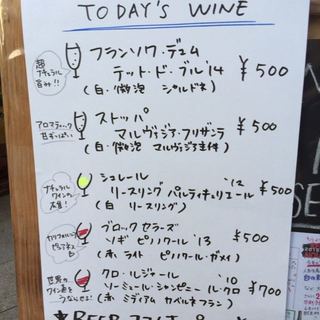 TODAY'S WINE
超
ナチュラル
旨み!!
フランソワ・デュム
テット・ド・ブル '14 ¥500
(白・微泡 シャルドネ)
アロマティック
甘ずっぱい
ストッパ
マルヴァジア・フリザンテ ¥500
(白・微泡 マルヴァジア主体)
ナチュラル
ワインの
本質!
シュレール '12
リースリング パルティキュリエール ¥500
(白 リースリング)
カリフォルニア
ピュアネス
ブロック セラーズ
ソギ ピノノワール '13 ¥500
(赤・ライト ピノノワール・ガメイ)
世界の
ワイン通を
うならせる!
クロ・ルジャール '10
ソーミュール・シャンピニー ル・クロ ¥700
(赤 ミディアム カベルネフラン)